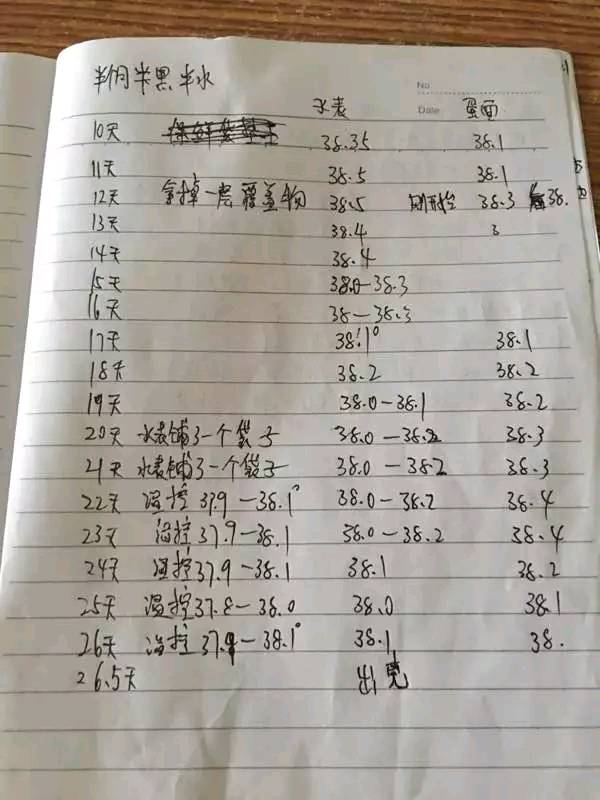 半月半黑半水
No
水表 Date 蛋面
10天 38.35 38.1
11天 38.5 38.1
12天 拿掉一层覆盖物 38.5 38.3 38.
13天 38.4 3
14天 38.4
15天 38.0-38.3
16天 38-38.3
17天 38.1° 38.1
18天 38.2 38.2
19天 38.0-38.1 38.2
20天 水表铺了一个袋子 38.0-38.2 38.3
21天 水表铺了一个袋子 38.0-38.2 38.3
22天 温控37.9-38.1° 38.0-38.2 38.4
23天 温控37.9-38.1 38.0-38.2 38.4
24天 温控37.9-38.1 38.1 38.2
25天 温控37.8-38.0 38.0 38.1
26天 温控37.9-38.1° 38.1 38.
26.5天 出壳